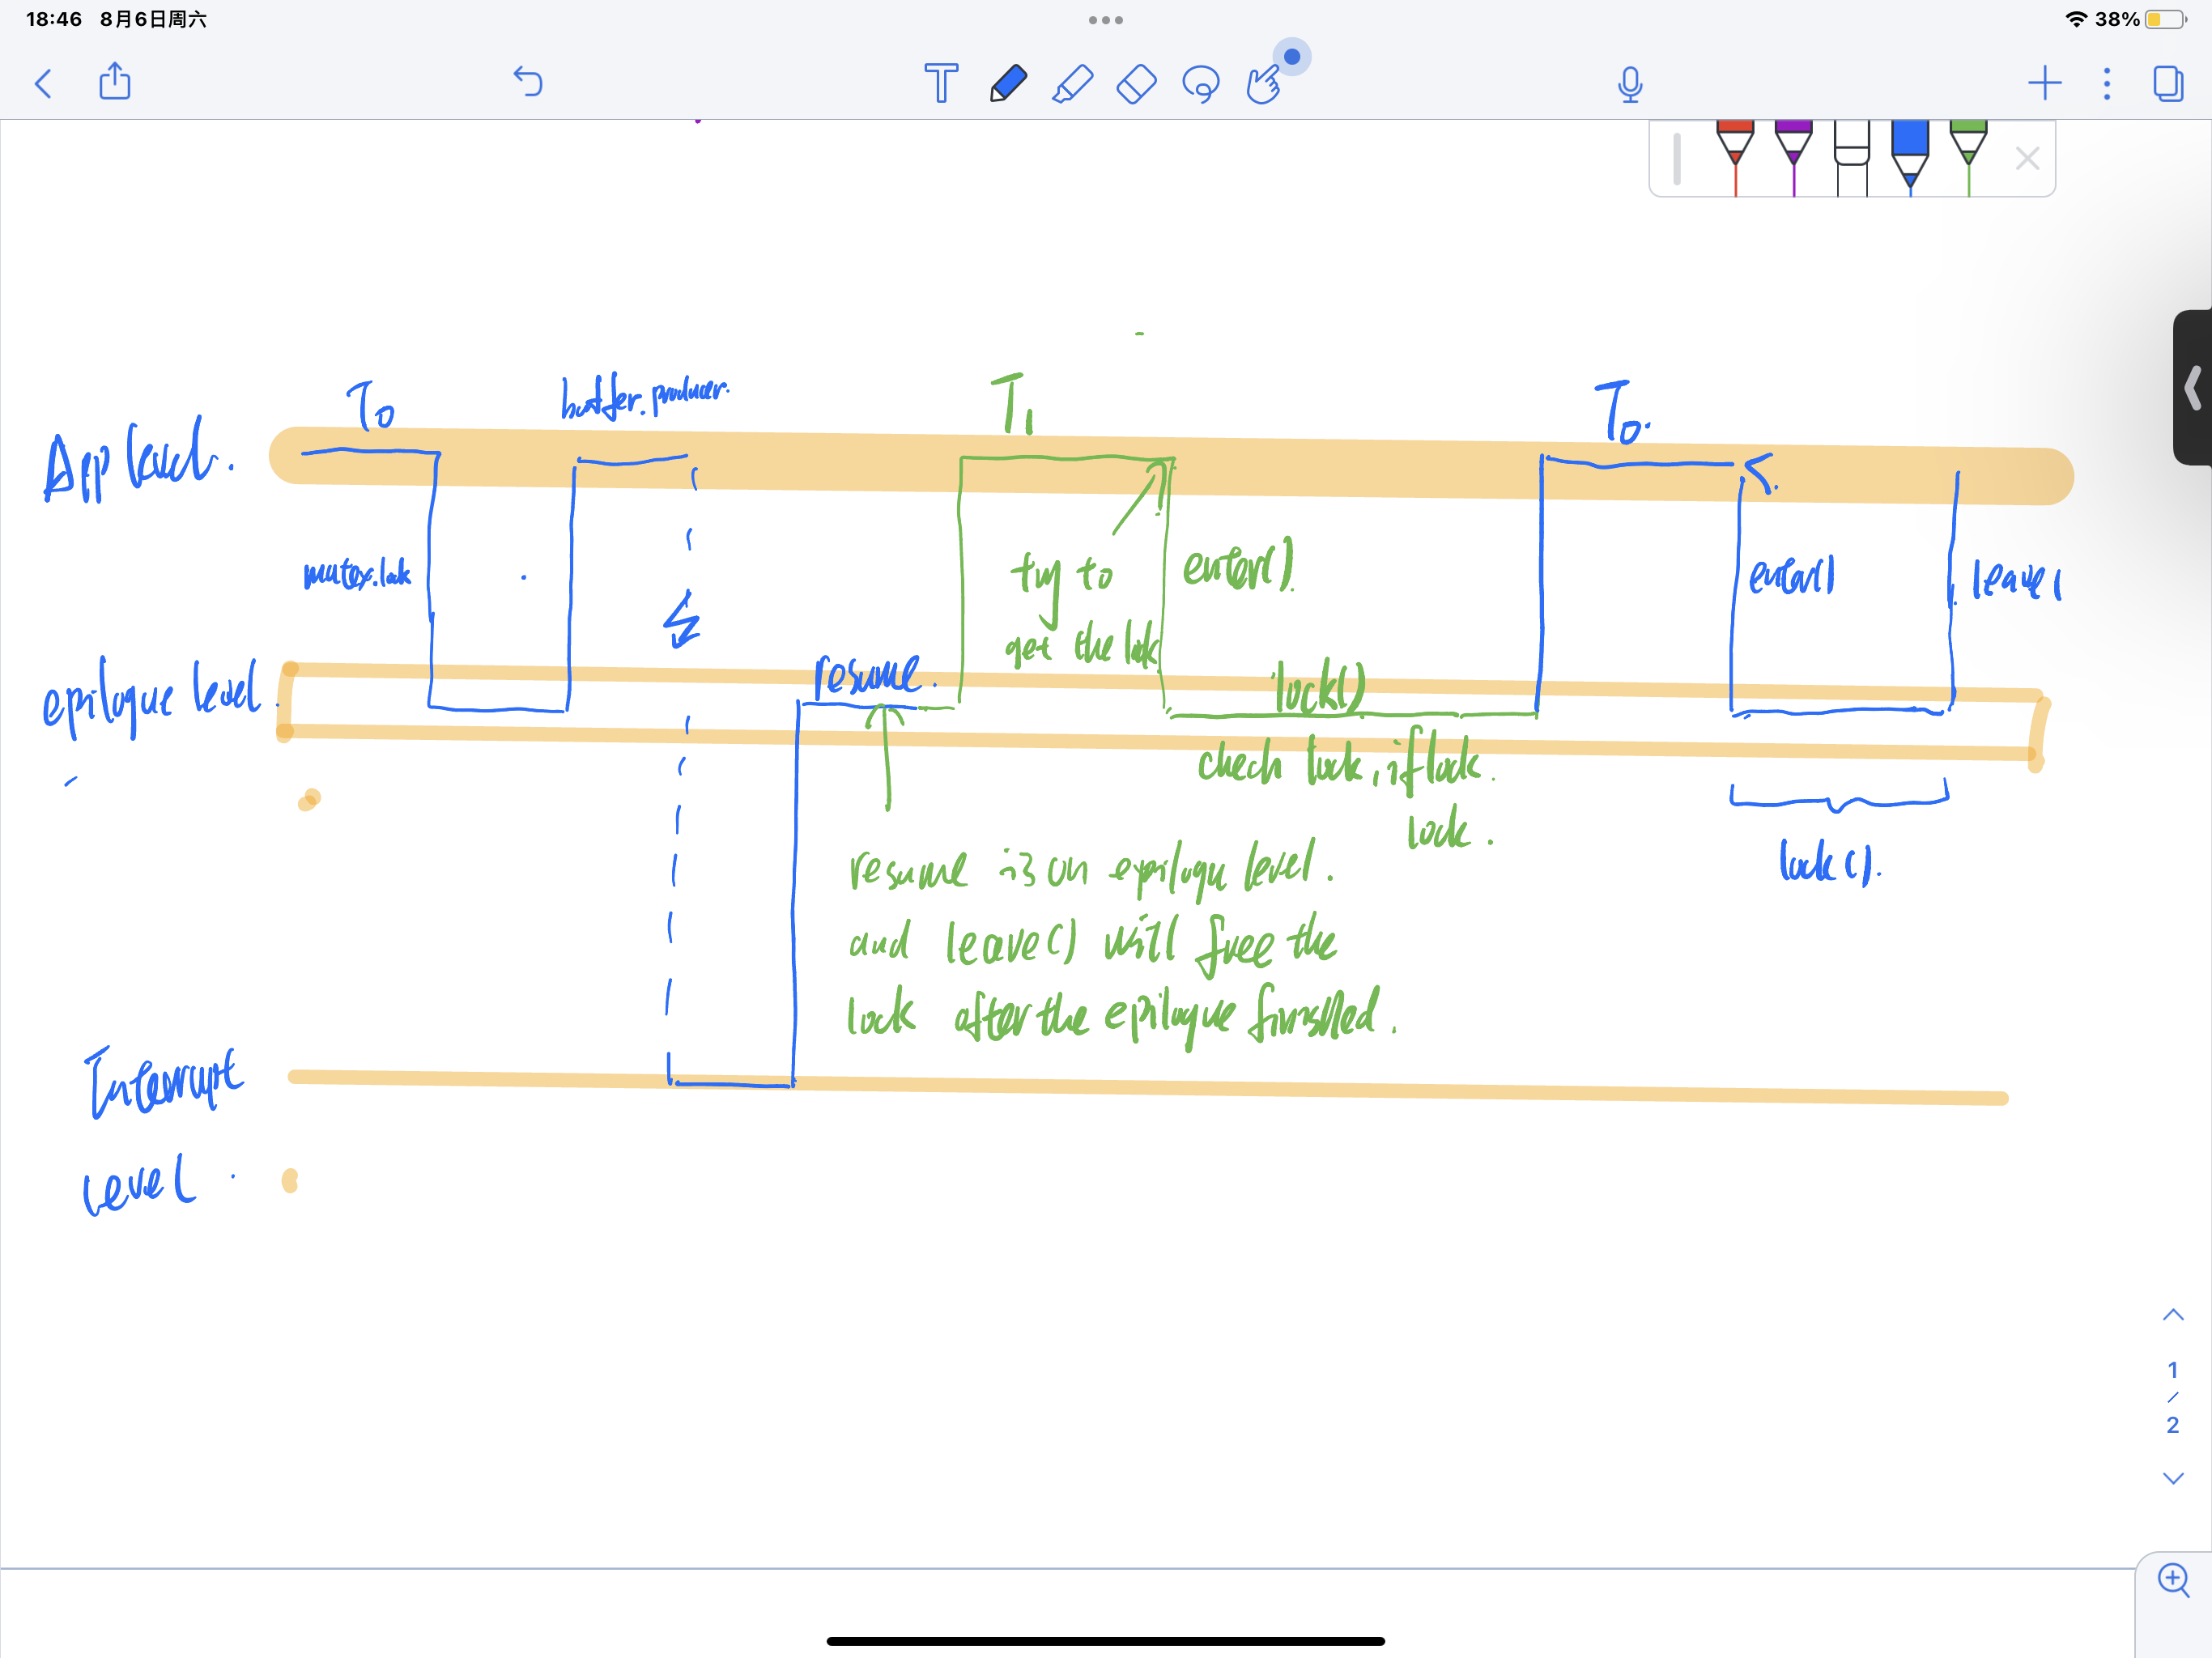 18:46 8月6日周六
38%
T
T₀
buffer.producer.
T₁
T₀.
App level.
mutex.lock
try to
get the lock
enter().
enter()
leave(
epilogue level.
resume.
lock()
check lock, if lock.
lock.
lock().
resume is on epilogue level.
and leave() will free the
lock after the epilogue finished.
Interrupt
Level.
1
/
2